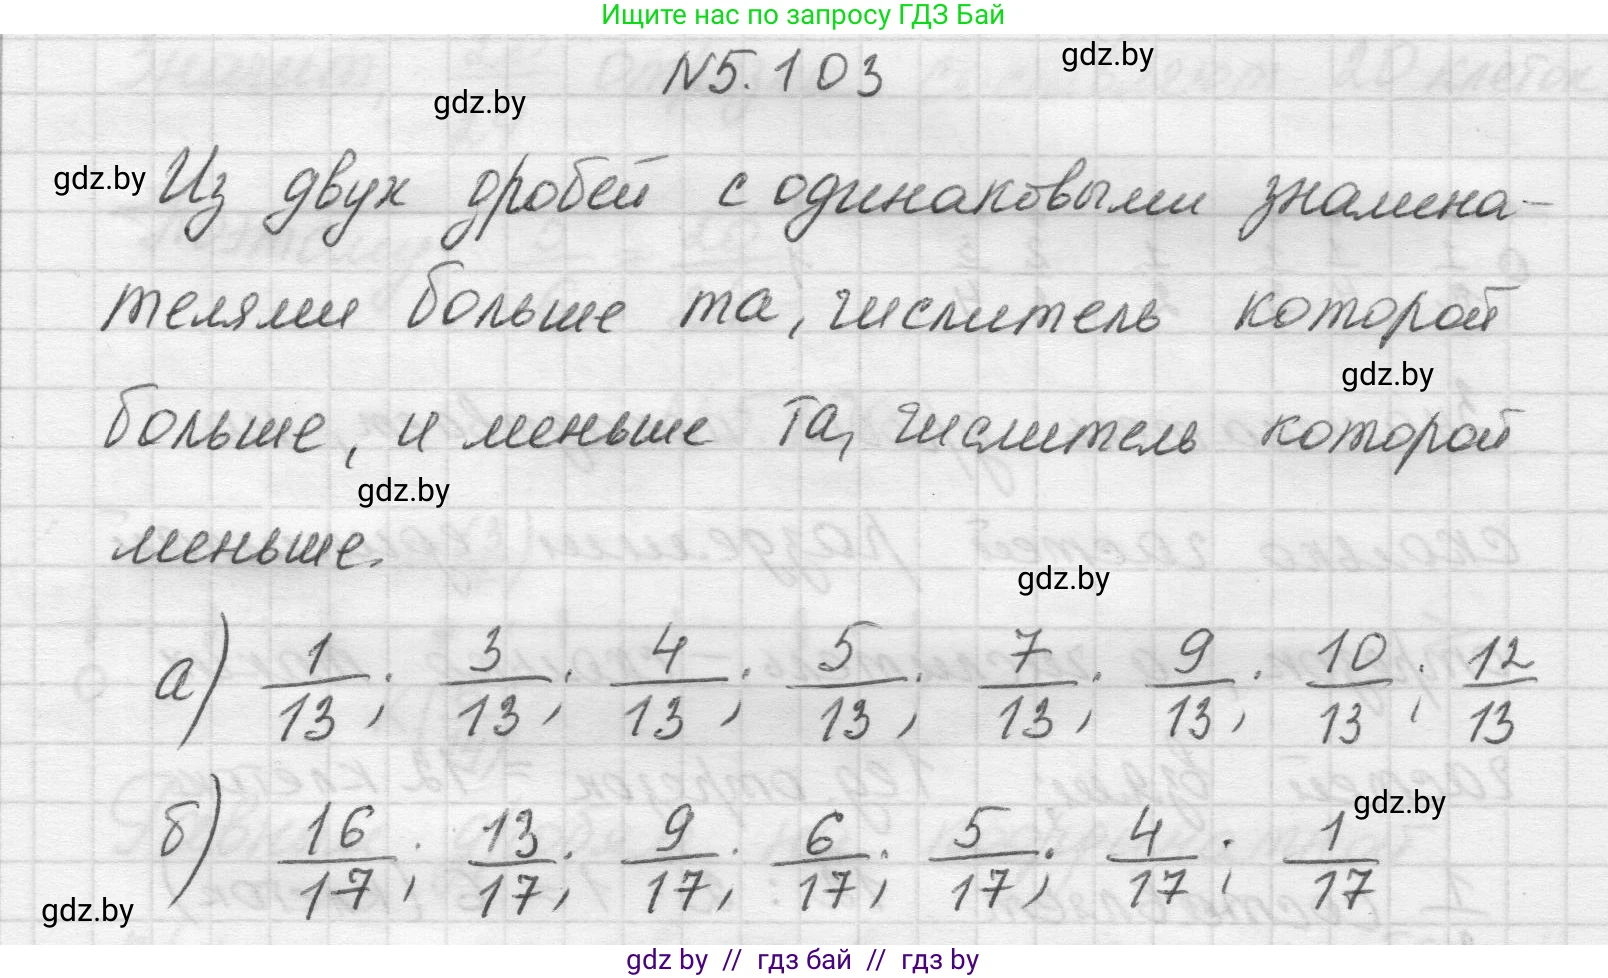 Ищите нас по запросу ГДЗ Бай
gdz.by
N5.103
gdz.by
gdz.by
Из двух дробей с одинаковыми знамена-
телями больше та, числитель которой
gdz.by
больше, и меньше та, числитель которой
gdz.by
меньше.
gdz.by
а) 1/13; 3/13; 4/13; 5/13; 7/13; 9/13; 10/13; 12/13
gdz.by
б) 16/17; 13/17; 9/17; 6/17; 5/17; 4/17; 1/17
gdz.by
gdz by // гдз бай // gdz by